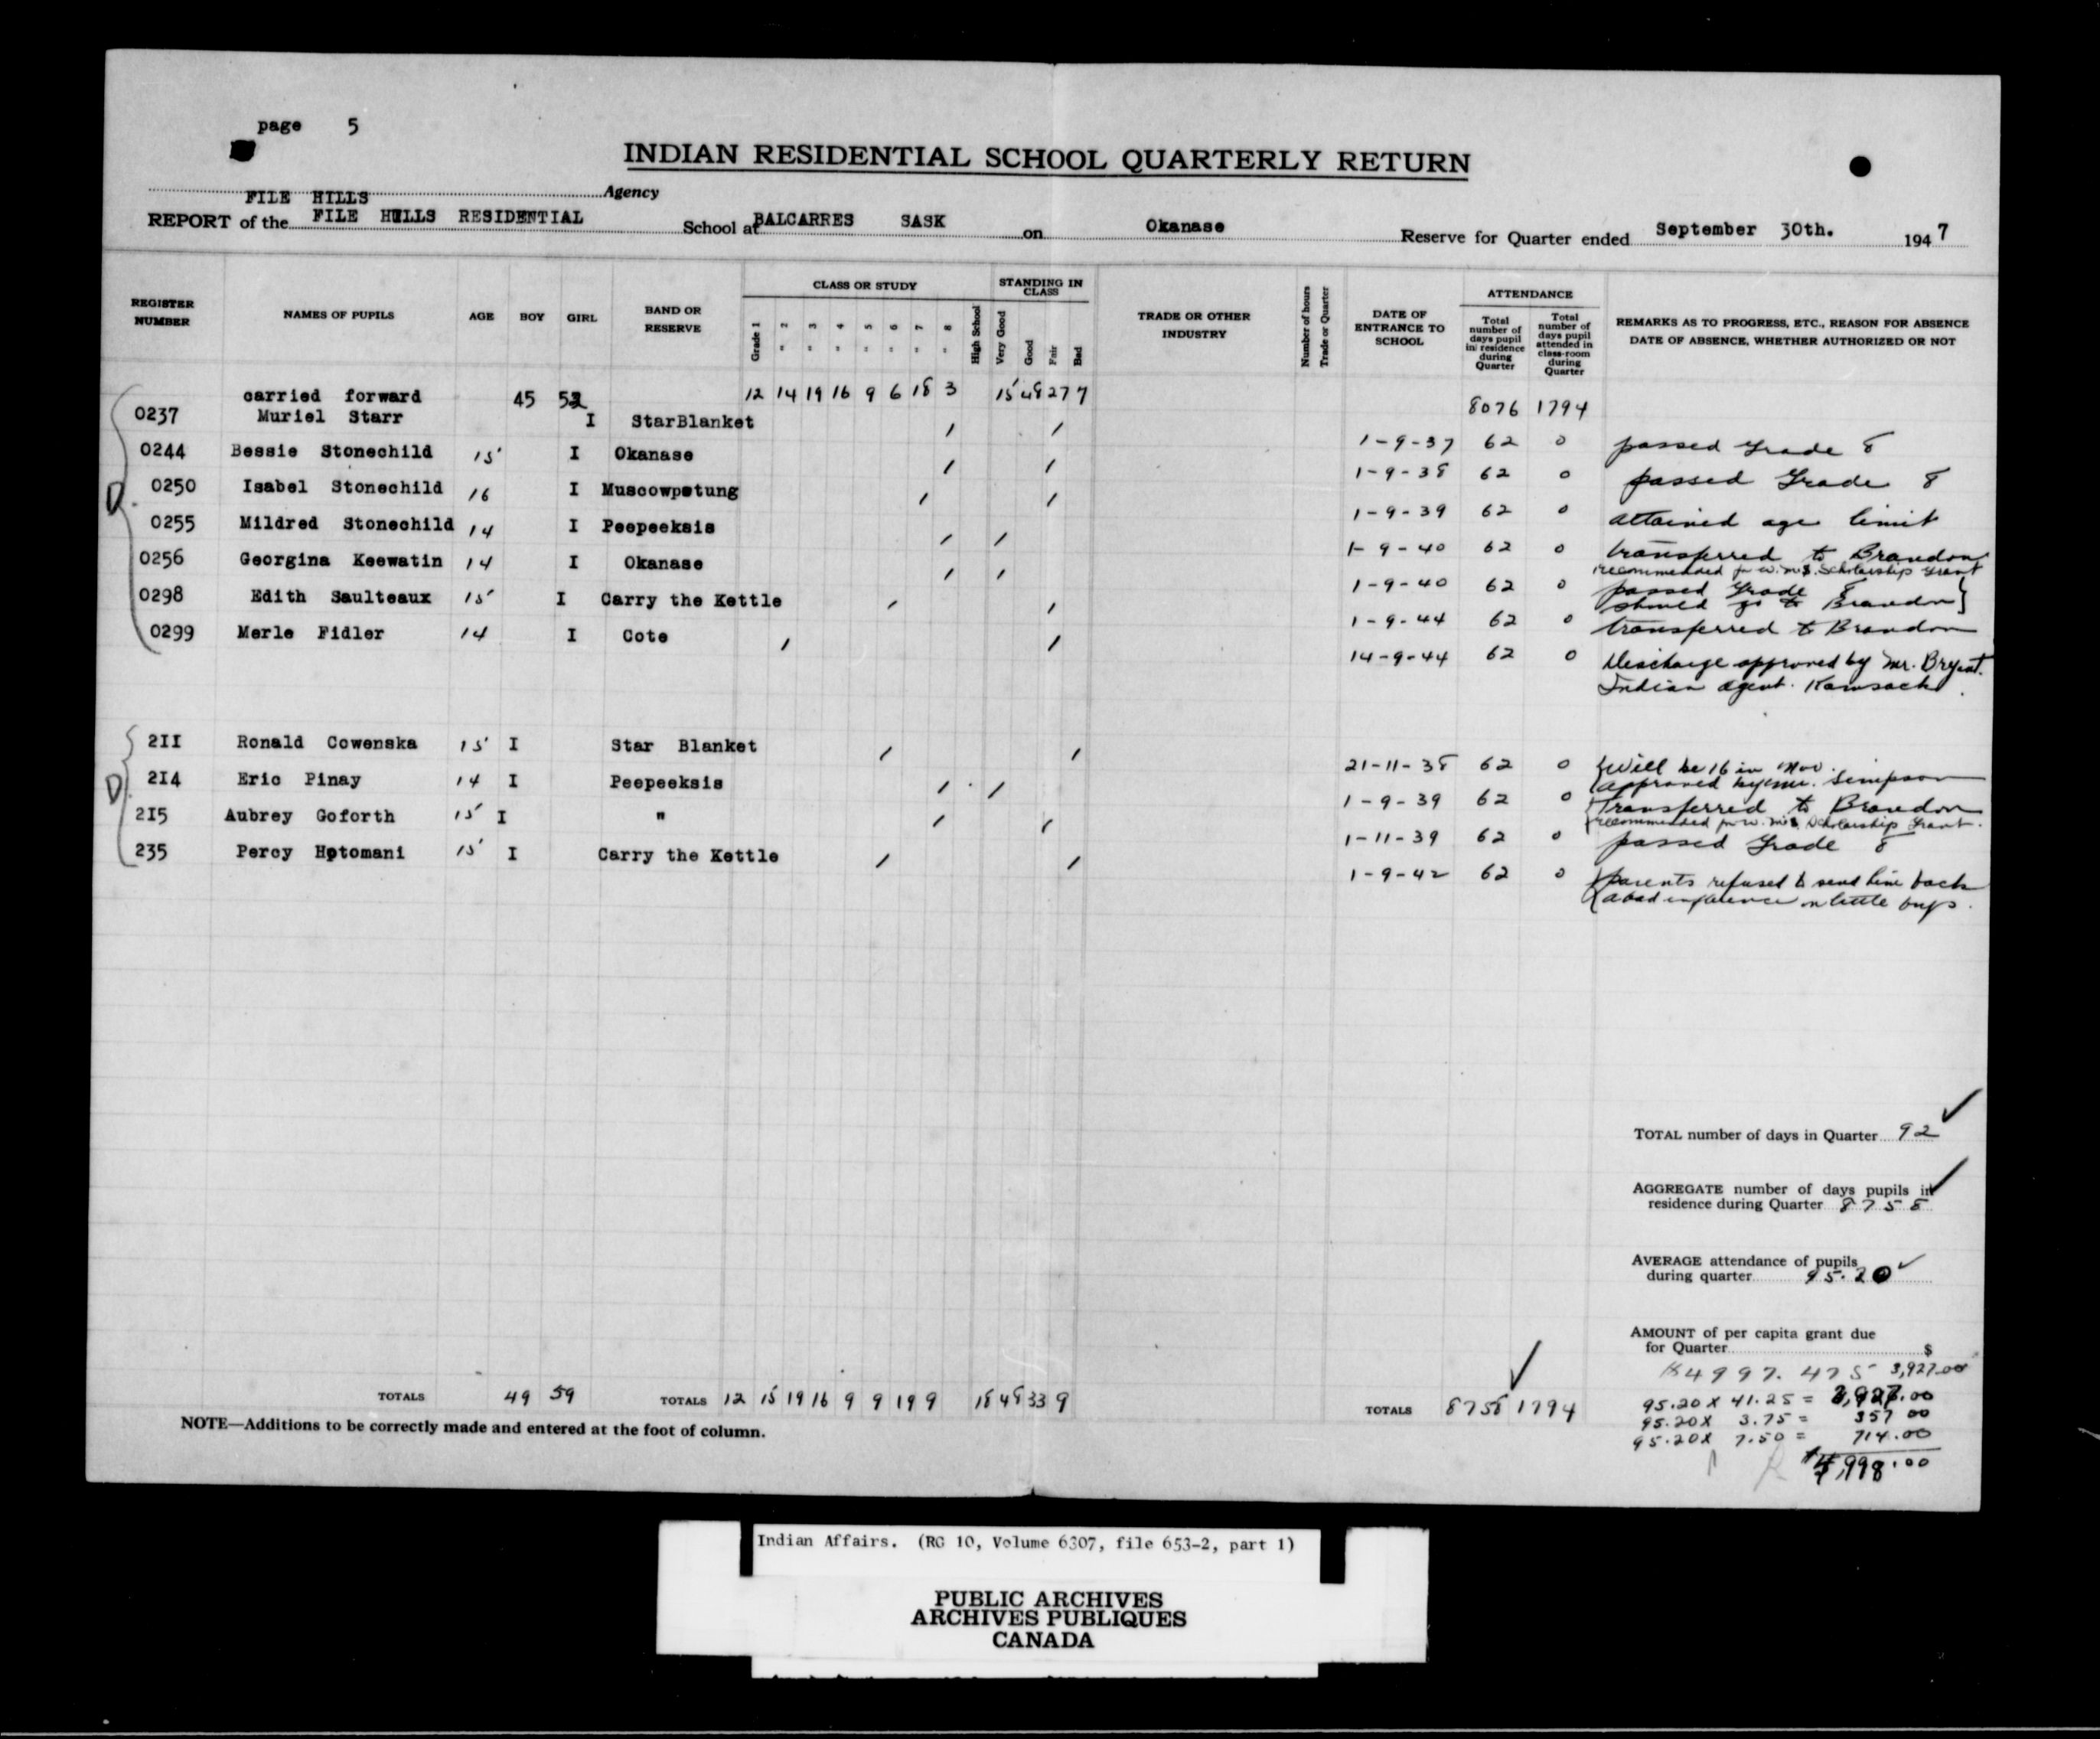 page 5
INDIAN RESIDENTIAL SCHOOL QUARTERLY RETURN
FILE HILLS Agency
REPORT of the FILE HILLS RESIDENTIAL School at BALCARRES SASK on Okanase Reserve for Quarter ended September 30th. 1947
REGISTER NUMBER NAMES OF PUPILS AGE BOY GIRL BAND OR RESERVE CLASS OR STUDY Grade 1 " 2 " 3 " 4 " 5 " 6 " 7 " 8 High School STANDING IN CLASS Very Good Good Fair Bad TRADE OR OTHER INDUSTRY Number of hours Trade or Quarter DATE OF ENTRANCE TO SCHOOL ATTENDANCE Total number of days pupil in residence during Quarter Total number of days pupil attended in class-room during Quarter REMARKS AS TO PROGRESS, ETC., REASON FOR ABSENCE DATE OF ABSENCE, WHETHER AUTHORIZED OR NOT
carried forward 45 52 12 14 19 16 9 6 18 3 15 48 27 7 8076 1794
0237 Muriel Starr I StarBlanket / / 1-9-37 62 0 passed Grade 8
0244 Bessie Stonechild 15 I Okanase / / 1-9-38 62 0 passed Grade 8
D. 0250 Isabel Stonechild 16 I Muscowpetung / / 1-9-39 62 0 attained age limit
0255 Mildred Stonechild 14 I Peepeeksis / / 1-9-40 62 0 transferred to Brandon
recommended for W.M.S. Scholarship Grant
0256 Georgina Keewatin 14 I Okanase / / 1-9-40 62 0 passed Grade 8
should go to Brandon
0298 Edith Saulteaux 15 I Carry the Kettle / / 1-9-44 62 0 transferred to Brandon
0299 Merle Fidler 14 I Cote / / 14-9-44 62 0 Discharge approved by Mr. Bryant.
Indian Agent. Kamsack.
211 Ronald Cowenska 15 I Star Blanket / / 21-11-38 62 0 Will be 16 in Nov.
approved by Mr. Simpson
D 214 Eric Pinay 14 I Peepeeksis / / 1-9-39 62 0 Transferred to Brandon
recommended for W.M.S. Scholarship Grant.
215 Aubrey Goforth 15 I " / / 1-11-39 62 0 passed Grade 8
235 Percy Hotomani 15 I Carry the Kettle / / 1-9-42 62 0 parents refused to send him back
a bad influence on little boys.
TOTAL number of days in Quarter 92
AGGREGATE number of days pupils in
residence during Quarter 8758
AVERAGE attendance of pupils
during quarter 95.20
AMOUNT of per capita grant due
for Quarter $
4997.475 3,927.00
TOTALS 49 59 TOTALS 12 15 19 16 9 9 19 9 18 48 33 9 TOTALS 8758 1794
95.20 X 41.25 = 3,927.00
95.20 X 3.75 = 357 00
95.20 X 7.50 = 714.00
$4,998.00
NOTE—Additions to be correctly made and entered at the foot of column.
Indian Affairs. (RG 10, Volume 6307, file 653-2, part 1)
PUBLIC ARCHIVES
ARCHIVES PUBLIQUES
CANADA